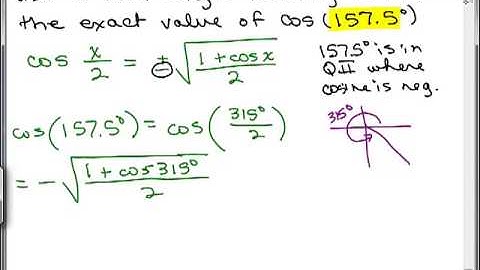 the exact value of cos (157.5°)
cos x/2 = ± √(1 + cos x / 2)
157.5° is in
QII where
cosine is neg.
cos(157.5°) = cos(315°/2)
315°
= - √(1 + cos 315° / 2)